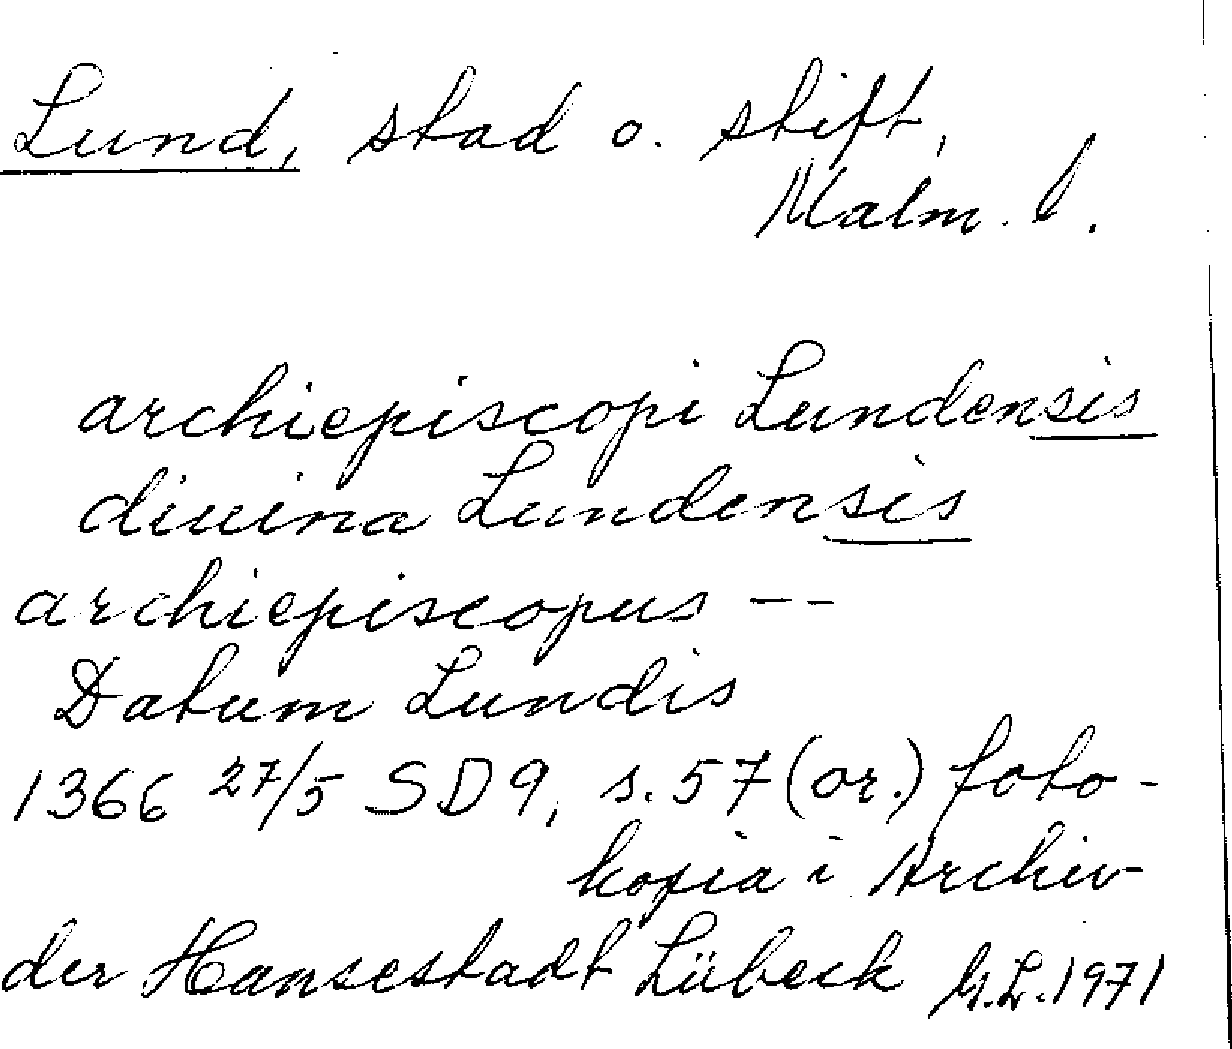 Lund, stad o. stift,
Malm. l.
archiepiscopi Lundensis
diuina Lundensis
archiepiscopus --
Datum Lundis
1366 27/5 SD 9, s. 57 (or.) foto-
kopia i Archiv
der Hansestadt Lübeck G.L. 1971